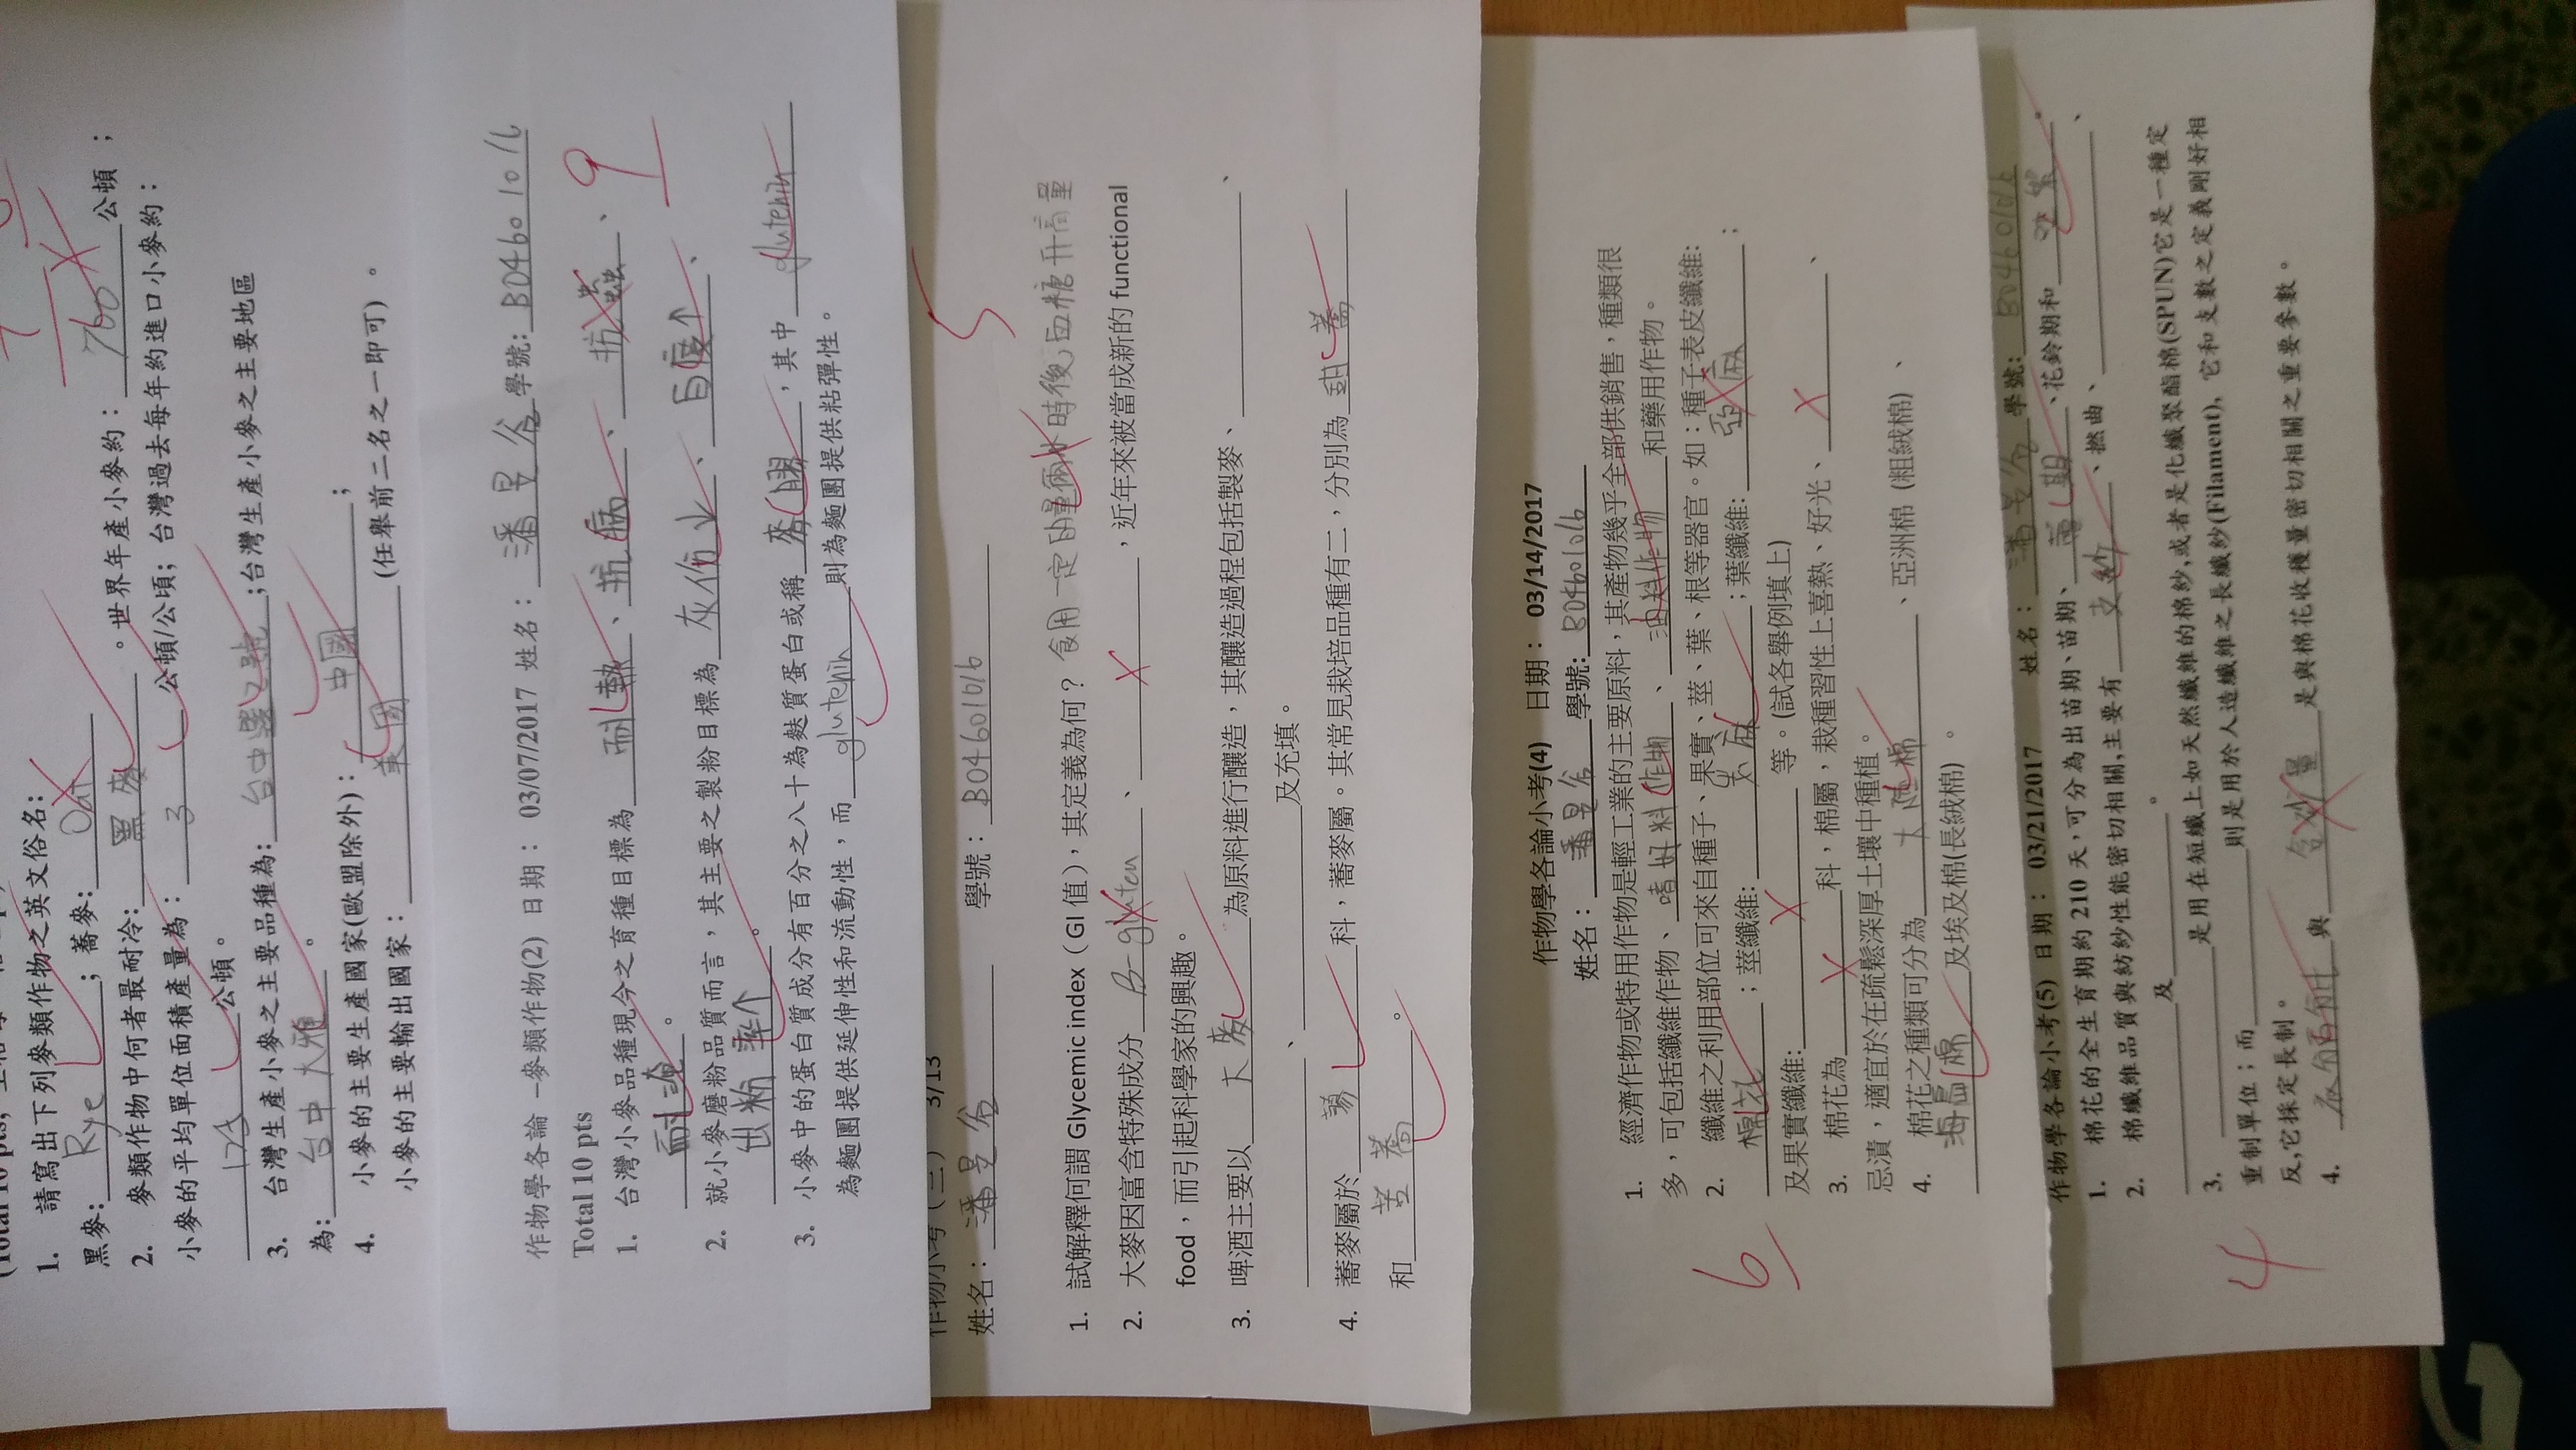 (Total 10 pts,
1. 請寫出下列麥類作物之英文俗名:
黑麥: Rye ; 蕎麥: Oat 。世界年產小麥約: 700 公頓 ;
2. 麥類作物中何者最耐冷: 黑麥
小麥的平均單位面積產量為: 3 公頓/公頃; 台灣過去每年約進口小麥約:
公頓。
3. 台灣生產小麥之主要品種為: 台中選2號 ;台灣生產小麥之主要地區
為: 台中大雅 。
4. 小麥的主要生產國家(歐盟除外): 中國 ;
小麥的主要輸出國家: 美國 (任舉前二名之一即可)。
作物學各論 –麥類作物(2) 日期: 03/07/2017 姓名: 潘昱谷 學號: B0460 1016
Total 10 pts
9
1. 台灣小麥品種現今之育種目標為 耐熱 、 抗病 、 抗蟲 、
耐 。
2. 就小麥磨粉品質而言,其主要之製粉目標為 灰份↓ 、 白度↑ 、
出粉率↑ 。
3. 小麥中的蛋白質成分有百分之八十為麩質蛋白或稱 麥膠 ,其中 glutenin
為麵團提供延伸性和流動性,而 glutenin 則為麵團提供粘彈性。
作物小考(三) 3/13
姓名: 潘昱谷 學號: B04601016
5
1. 試解釋何謂 Glycemic index(GI 值),其定義為何? 食用一定 時後血糖升高量
2. 大麥因富含特殊成分 B-gluten 、 ,近年來被當成新的 functional
food,而引起科學家的興趣。
3. 啤酒主要以 大麥 為原料進行釀造,其釀造過程包括製麥、 、
、 及充填。
4. 蕎麥屬於 蓼 科,蕎麥屬。其常見栽培品種有二,分別為 甜蕎
和 苦蕎 。
作物學各論小考(4) 日期: 03/14/2017
姓名: 潘昱谷 學號: B04601016
1. 經濟作物或特用作物是輕工業的主要原料,其產物幾乎全部供銷售,種類很
多,可包括纖維作物、 嗜好料作物 、 油料作物 和藥用作物。
2. 纖維之利用部位可來自種子、果實、莖、葉、根等器官。如:種子表皮纖維:
棉花 ;莖纖維: 麻 ;葉纖維: 亞麻 ;
及果實纖維: 等。(試各舉例填上)
3. 棉花為 科,棉屬,栽種習性上喜熱、好光、 、
忌漬,適宜於在疏鬆深厚土壤中種植。
4. 棉花之種類可分為 大陸棉 、亞洲棉 (粗絨棉)、
海島棉 及埃及棉(長絨棉) 。
6
作物學各論小考(5) 日期: 03/21/2017 姓名: 潘昱谷 學號: B04601016
1. 棉花的全生育期約 210 天,可分為出苗期、苗期、 蕾期 、花鈴期和 吐絮 .
2. 棉纖維品質與紡紗性能密切相關,主要有 支紗 、撚曲、 、
及 。
3. 是用在短纖上如天然纖維的棉紗,或者是化纖聚酯棉(SPUN)它是一種定
重制單位;而 則是用於人造纖維之長纖紗(Filament), 它和支數之定義剛好相
反,它採定長制。
4. 與 是與棉花收穫量密切相關之重要參數。
4